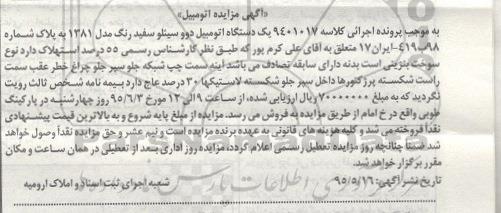 «آگهی مزایده اتومبیل»
به موجب پرونده اجرائی کلاسه ۹۴۰۱۰۱۷ یک دستگاه اتومبیل دوو سیلو سفید رنگ مدل ۱۳۸۱ به پلاک شماره
۹۸ب۴۱۹-ایران۱۷ متعلق به آقای علی کرم پور که طبق نظر کارشناس رسمی ۵۵ درصد استهلاک دارد نوع
سوخت بنزینی است بدنه دارای سابقه تصادف می باشد آینه سمت چپ شبکه جلو سپر جلو چراغ خطر عقب سمت
راست شکسته پرژکتورها داخل سپر جلو شکسته لاستیکها ۳۰ درصد عاج دارد بیمه نامه شخص ثالث رویت
نگردید که به مبلغ ۷۰۰۰۰۰۰۰ ریال ارزیابی شده، از ساعت ۹ الی ۱۲ مورخ ۹۵/۶/۳ روز چهارشنبه در پارکینگ
طوبی واقع در خ امام از طریق مزایده به فروش می رسد. مزایده از مبلغ پایه شروع و به بالاترین قیمت پیشنهادی
نقداً فروخته می شد و کلیه هزینه های قانونی به عهده برنده مزایده است و نیم عشر و حق مزایده نقداً وصول خواهد
شد ضمناً چنانچه روز مزایده تعطیل رسمی اعلام گردد، مزایده روز اداری بعد از تعطیلی در همان ساعت و مکان
مقرر برگزار خواهد شد.
تاریخ نشر آگهی: ۹۵/۵/۱۶ شعبه اجرای ثبت اسناد و املاک ارومیه